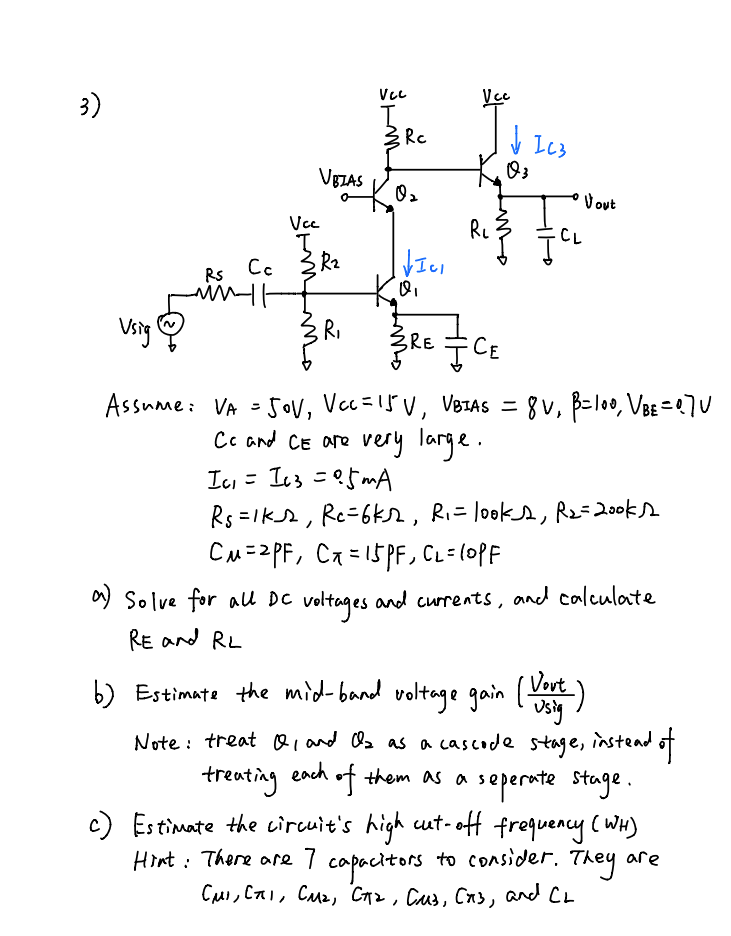 3)
Vcc
Vcc
Rc
IC3
VBIAS
Q3
Q2
Vout
Vcc
RL
CL
R2
IC1
Rs
Cc
Q1
Vsig
R1
RE
CE
Assume: VA = 50V, Vcc = 15V, VBIAS = 8V, β=100, VBE=0.7V
Cc and CE are very large.
IC1 = IC3 = 0.5mA
Rs=1kΩ, Rc=6kΩ, R1=100kΩ, R2=200kΩ
Cμ=2PF, Cπ=15PF, CL=10PF
a) Solve for all DC voltages and currents, and calculate
RE and RL
b) Estimate the mid-band voltage gain (Vout/Vsig)
Note: treat Q1 and Q2 as a cascode stage, instead of
treating each of them as a seperate stage.
c) Estimate the circuit's high cut-off frequency (WH)
Hint: There are 7 capacitors to consider. They are
Cμ1, Cπ1, Cμ2, Cπ2, Cμ3, Cπ3, and CL